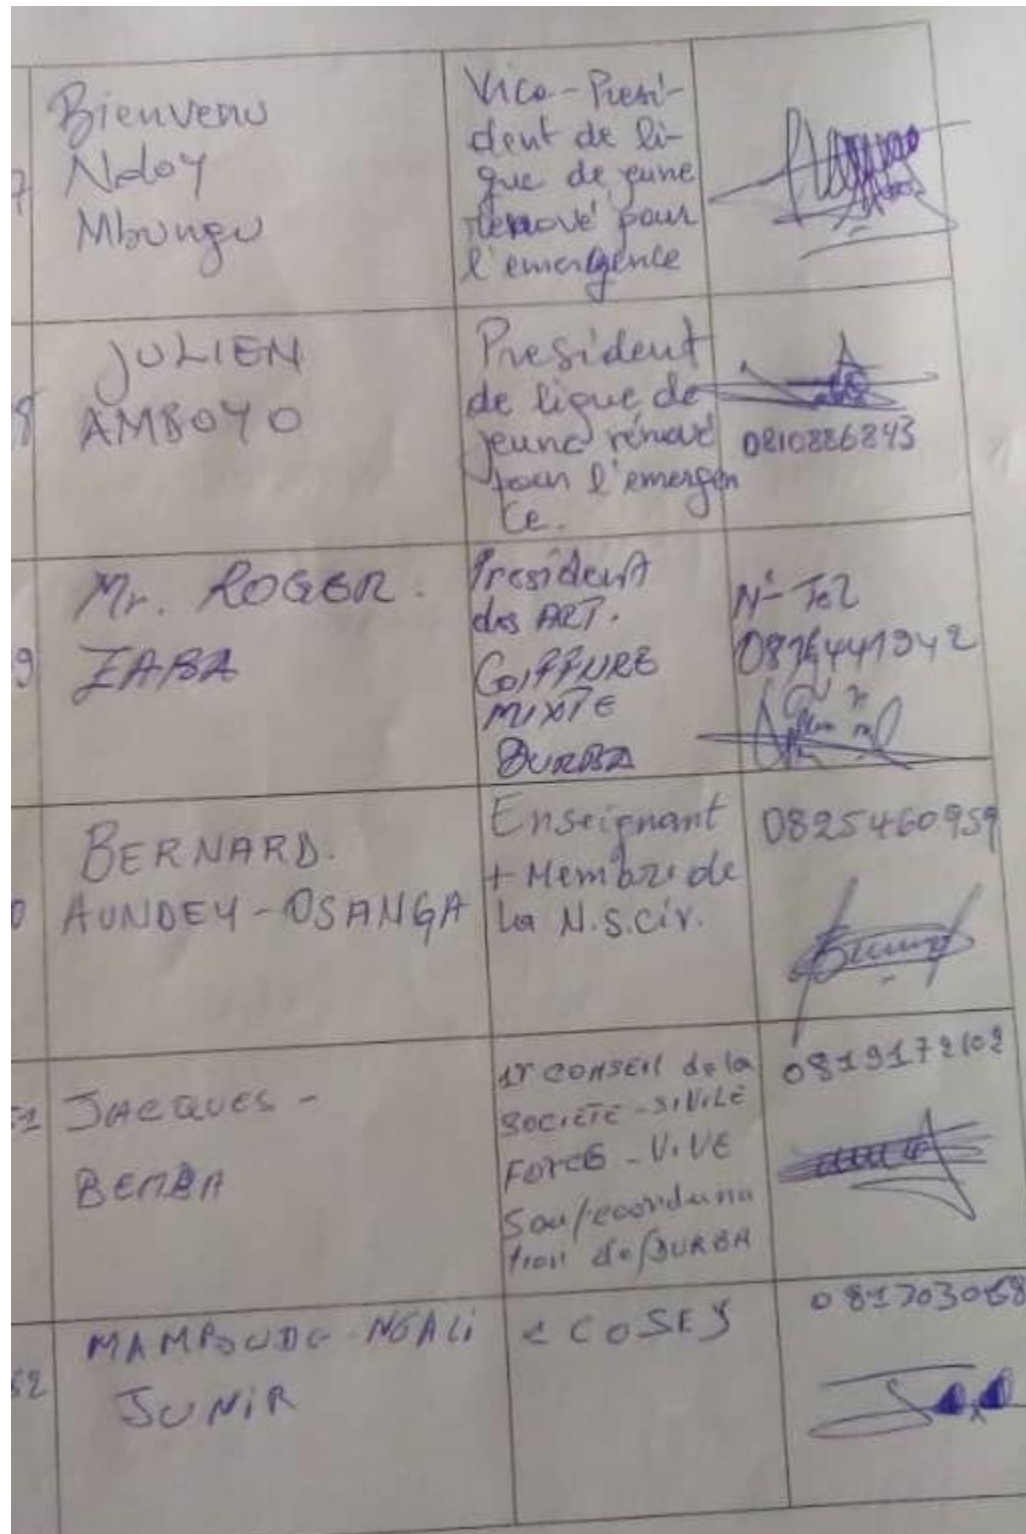 7
Bienvenu
Ndoy
Mbungu
Vice-Presi-
dent de li-
gue de jeune
renové pour
l'emergence
8
JULIEN
AMBOYO
President
de ligue de
jeune rénové
pour l'emergen
ce.
0810886843
9
Mr. ROGER.
ZABA
President
des ART.
COIFFURE
MIXTE
DURBA
N° Tel
0
BERNARD.
AUNDEY-OSANGA
Enseignant
+ Membre de
la N.S.Civ.
0825460959
51
JACQUES-
BEMBA
1r CONSEIL de la
SOCIETE-SIVILE
FORCE-VIVE
Sou/coordina
tion de DURBA
0819172102
52
NGALi
JUNiR